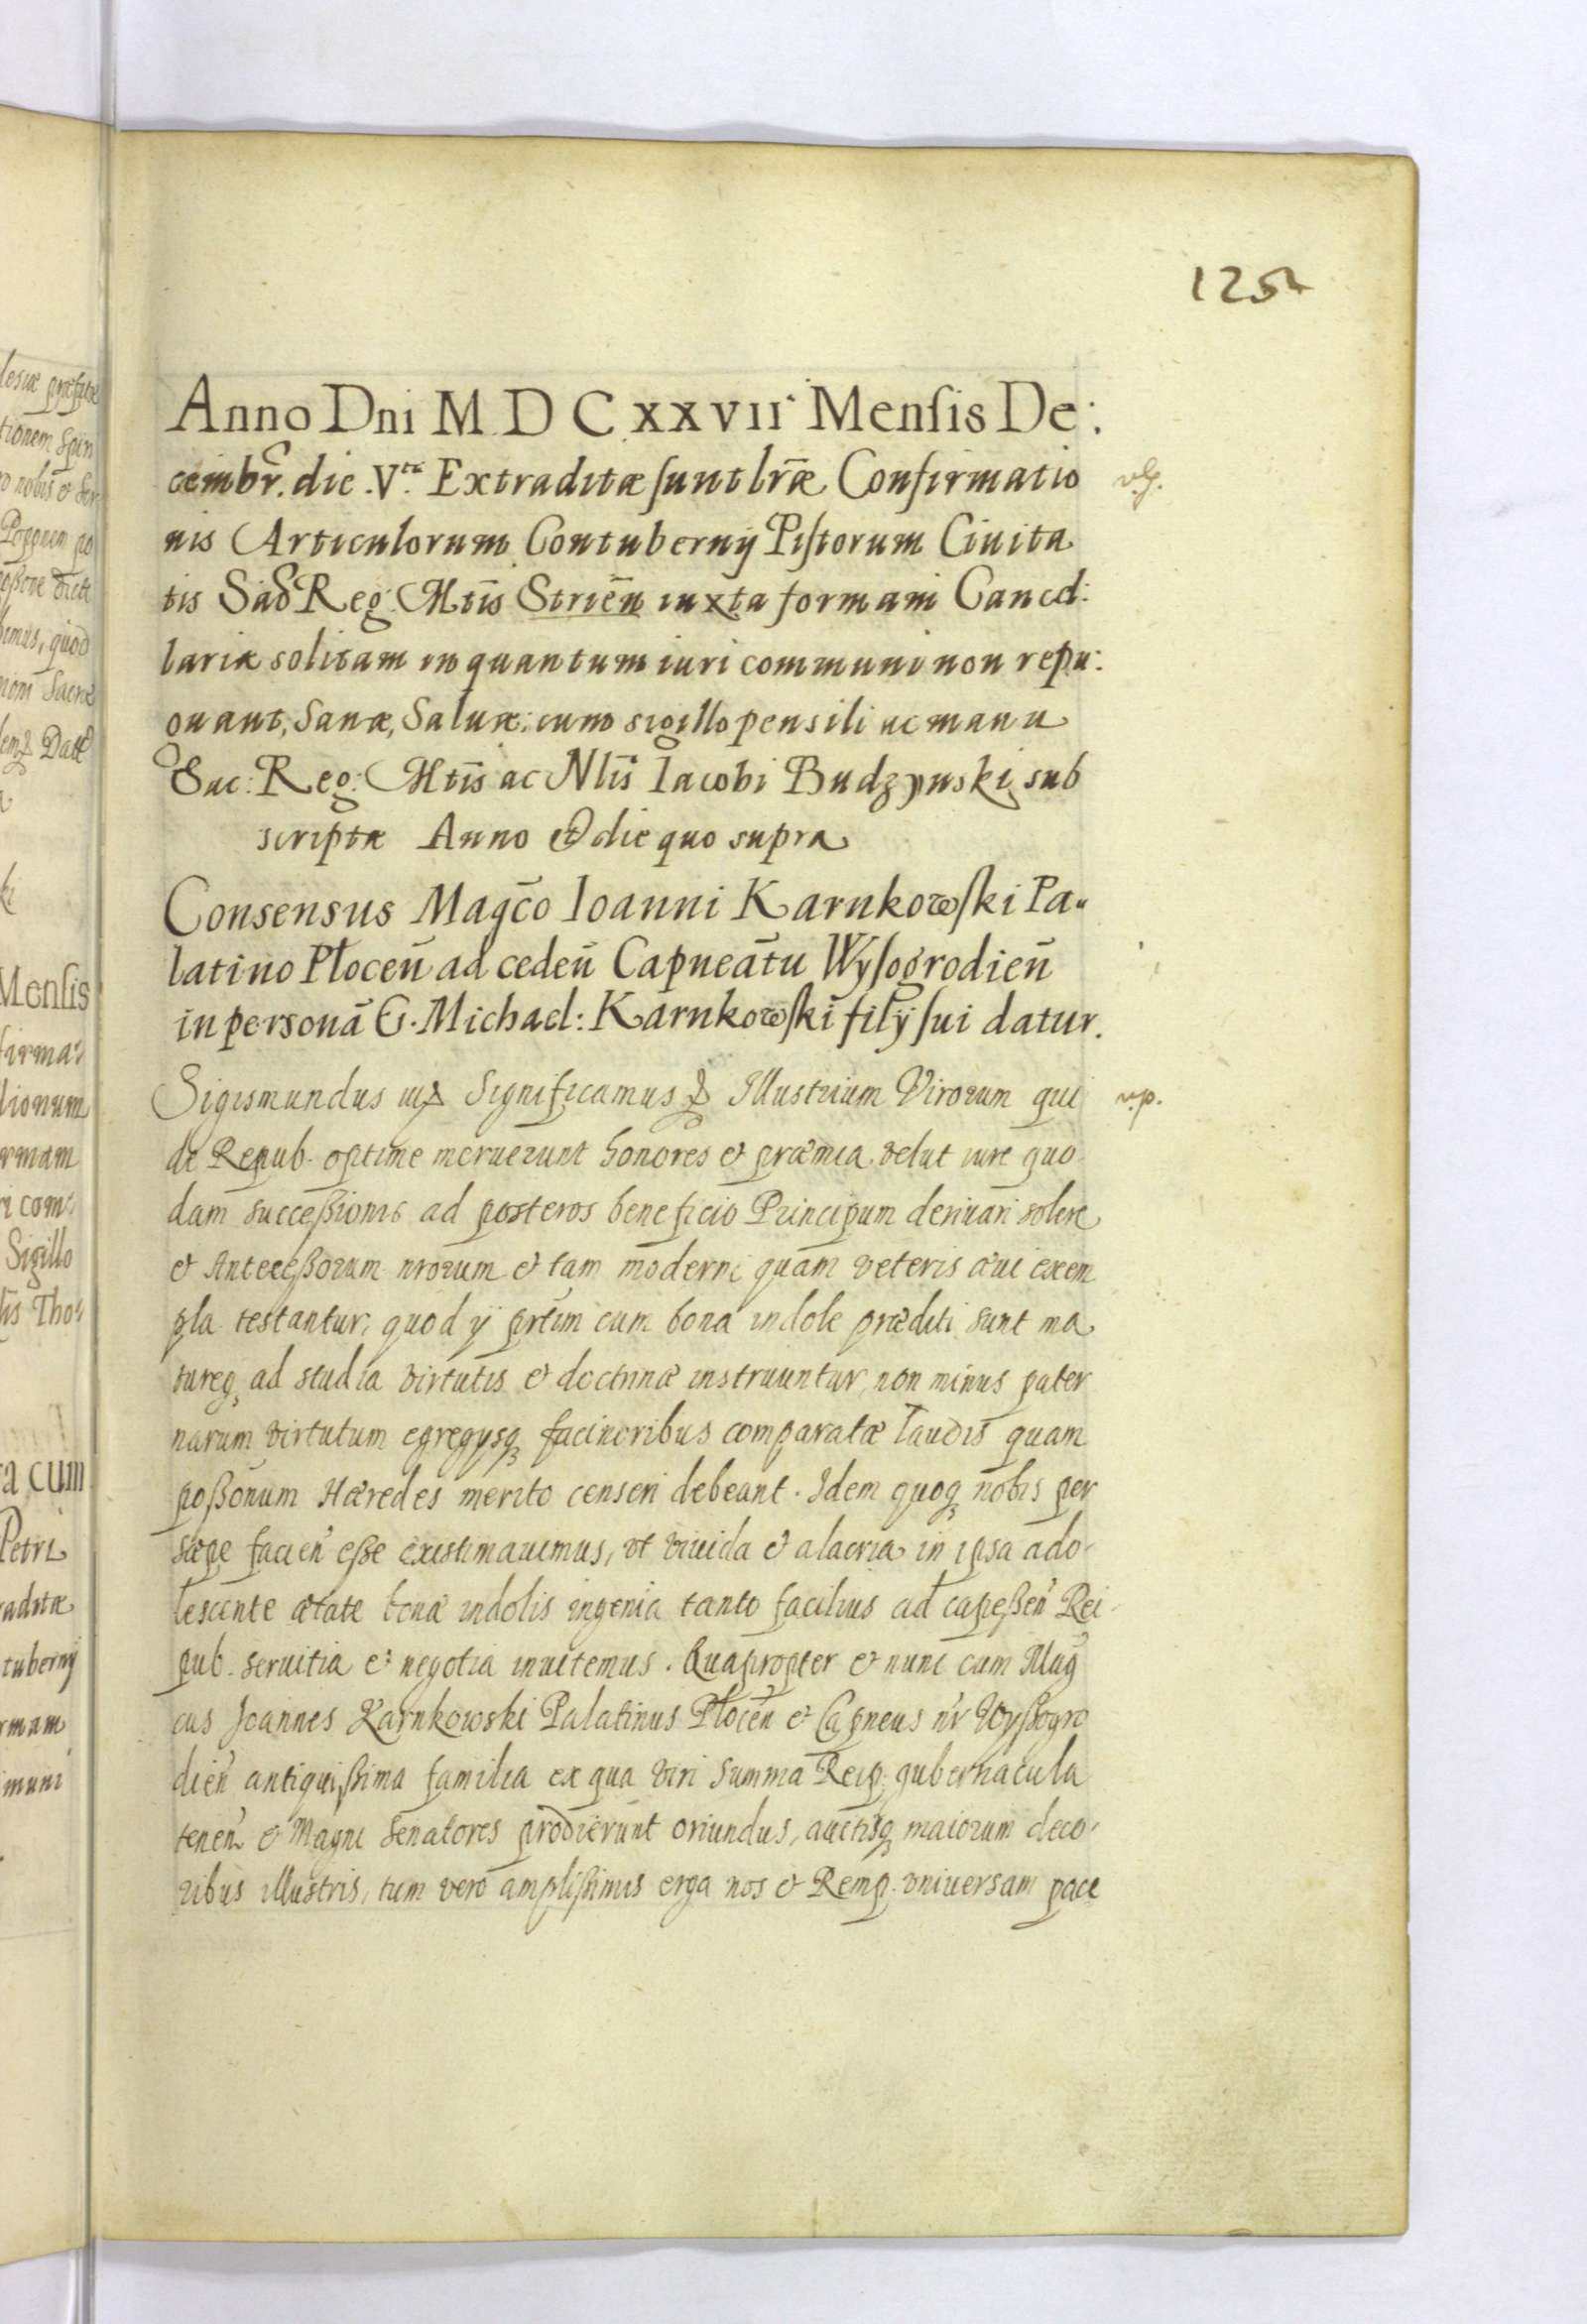 125
Anno Dni M D C XXVII Mensis De:
cembr. die .Vta. Extraditæ sunt lr̄æ Confirmatio
nis Articulorum Contubernij Pistorum Ciuita
tis Sac Reg: Mtis Striēn iuxta formam Cancel:
lariæ solitam in quantum iuri communi non repu:
gnant, Sanæ, Saluæ: cum sigillo pensili ac manu
Sac: Reg: Mtis ac Nlis Iacobi Budzynski sub
scriptæ Anno et die quo supra
Consensus Magc̄o Ioanni Karnkowski Pa-
latino Płoceñ ad cedeñ Capneātu Wysogrodieñ
in personā G. Michael: Karnkowski filij sui datur.
Sigismundus III& Significamus & Illustrium Virorum qui
de Repub. optime meruerunt honores et præmia velut iure quo
dam successionis ad posteros beneficio Principum deriuari solere
et Antecessorum nrorum et tam moderni quam veteris æui exem
pla testantur, quod ij prtim cum bona indole præditi sunt ma
tureq3 ad studia virtutis et doctrinæ instruuntur, non minus pater
narum virtutum egregijsq3 facinoribus comparatæ laudis quam
possonum Hæredes merito censeri debeant. Idem quoq3 nobis per
sæpe facieñ esse existimauimus, vt viuida et alacria in ipsa ado-
lescente ætate bonæ indolis ingenia tanto facilius ad capesseñ Rei-
pub. seruitia et negotia inuitemus. Quapropter et nunc cum Mag
cus Joannes Karnkowski Palatinus Płoceñ et Capneus nr Wyssogro
dieñ antiquissima familia ex qua viri summa Reip: gubernacula
teneñ et Magni Senatores prodierunt oriundus, auctisq3 maiorum deco-
ribus illustris, tum vero amplissimis erga nos et Remp. vniuersam pace
vp.